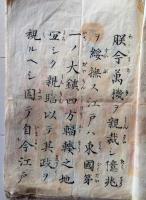 朕今萬機ヲ親裁シ億兆
ヲ綏撫ス江戸ハ東國第
一ノ大鎭四方輻輳之地
宜シク親臨以テ其政ヲ
視ルヘシ因テ自今江戸